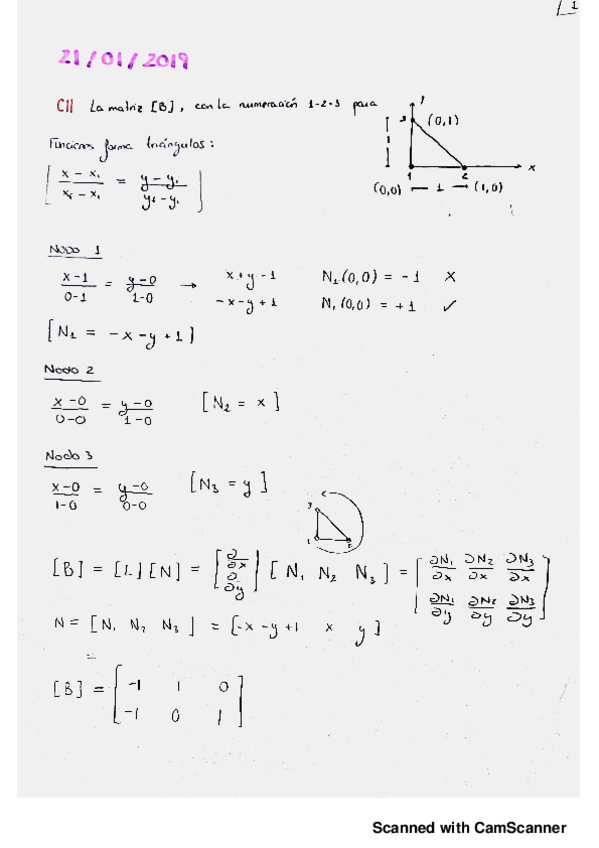 1
21/01/2019
C11 La matriz [B], con la numeración 1-2-3 para
Funciones forma triángulos:
[ (x - x₁)/(x₂ - x₁) = (y - y₁)/(y₂ - y₁) ]
y
3 (0,1)
1 2 x
(0,0) 1 (1,0)
Nodo 1
(x-1)/(0-1) = (y-0)/(1-0) → x+y-1 N₁(0,0) = -1 X
-x-y+1 N₁(0,0) = +1 ✓
[N₁ = -x-y+1]
Nodo 2
(x-0)/(0-0) = (y-0)/(1-0) [N₂ = x]
Nodo 3
(x-0)/(1-0) = (y-0)/(0-0) [N₃ = y]
3
1 2
[B] = [L][N] = [∂/∂x ; ∂/∂y] [N₁ N₂ N₃] = [∂N₁/∂x ∂N₂/∂x ∂N₃/∂x ; ∂N₁/∂y ∂N₂/∂y ∂N₃/∂y]
N = [N₁ N₂ N₃] = [-x-y+1 x y]
=
[B] = [-1 1 0 ; -1 0 1]
Scanned with CamScanner